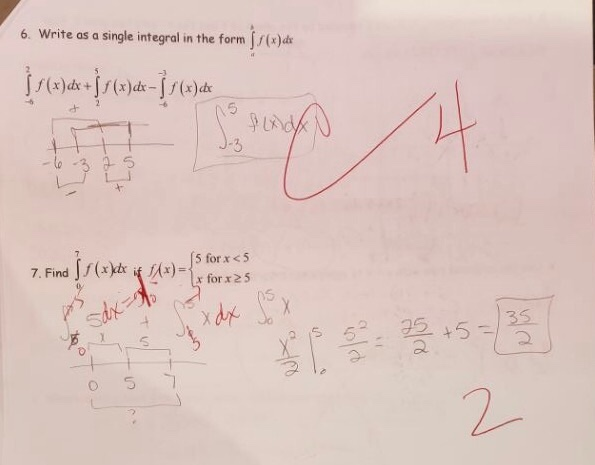 6. Write as a single integral in the form ∫_a^b f(x)dx
∫_{-6}^{2} f(x)dx + ∫_{2}^{5} f(x)dx − ∫_{-6}^{-3} f(x)dx
+
-6 -3 2 5
− +
∫_{-3}^{5} f(x)dx
4
7. Find ∫_0^7 f(x)dx if f(x) = {5 for x < 5
x for x ≥ 5
5dx =
+
x dx ∫_0^5 x
x 5
0 5 7
?
x²/2 |_0^5 5²/2 = 25/2 + 5 = 35/2
2